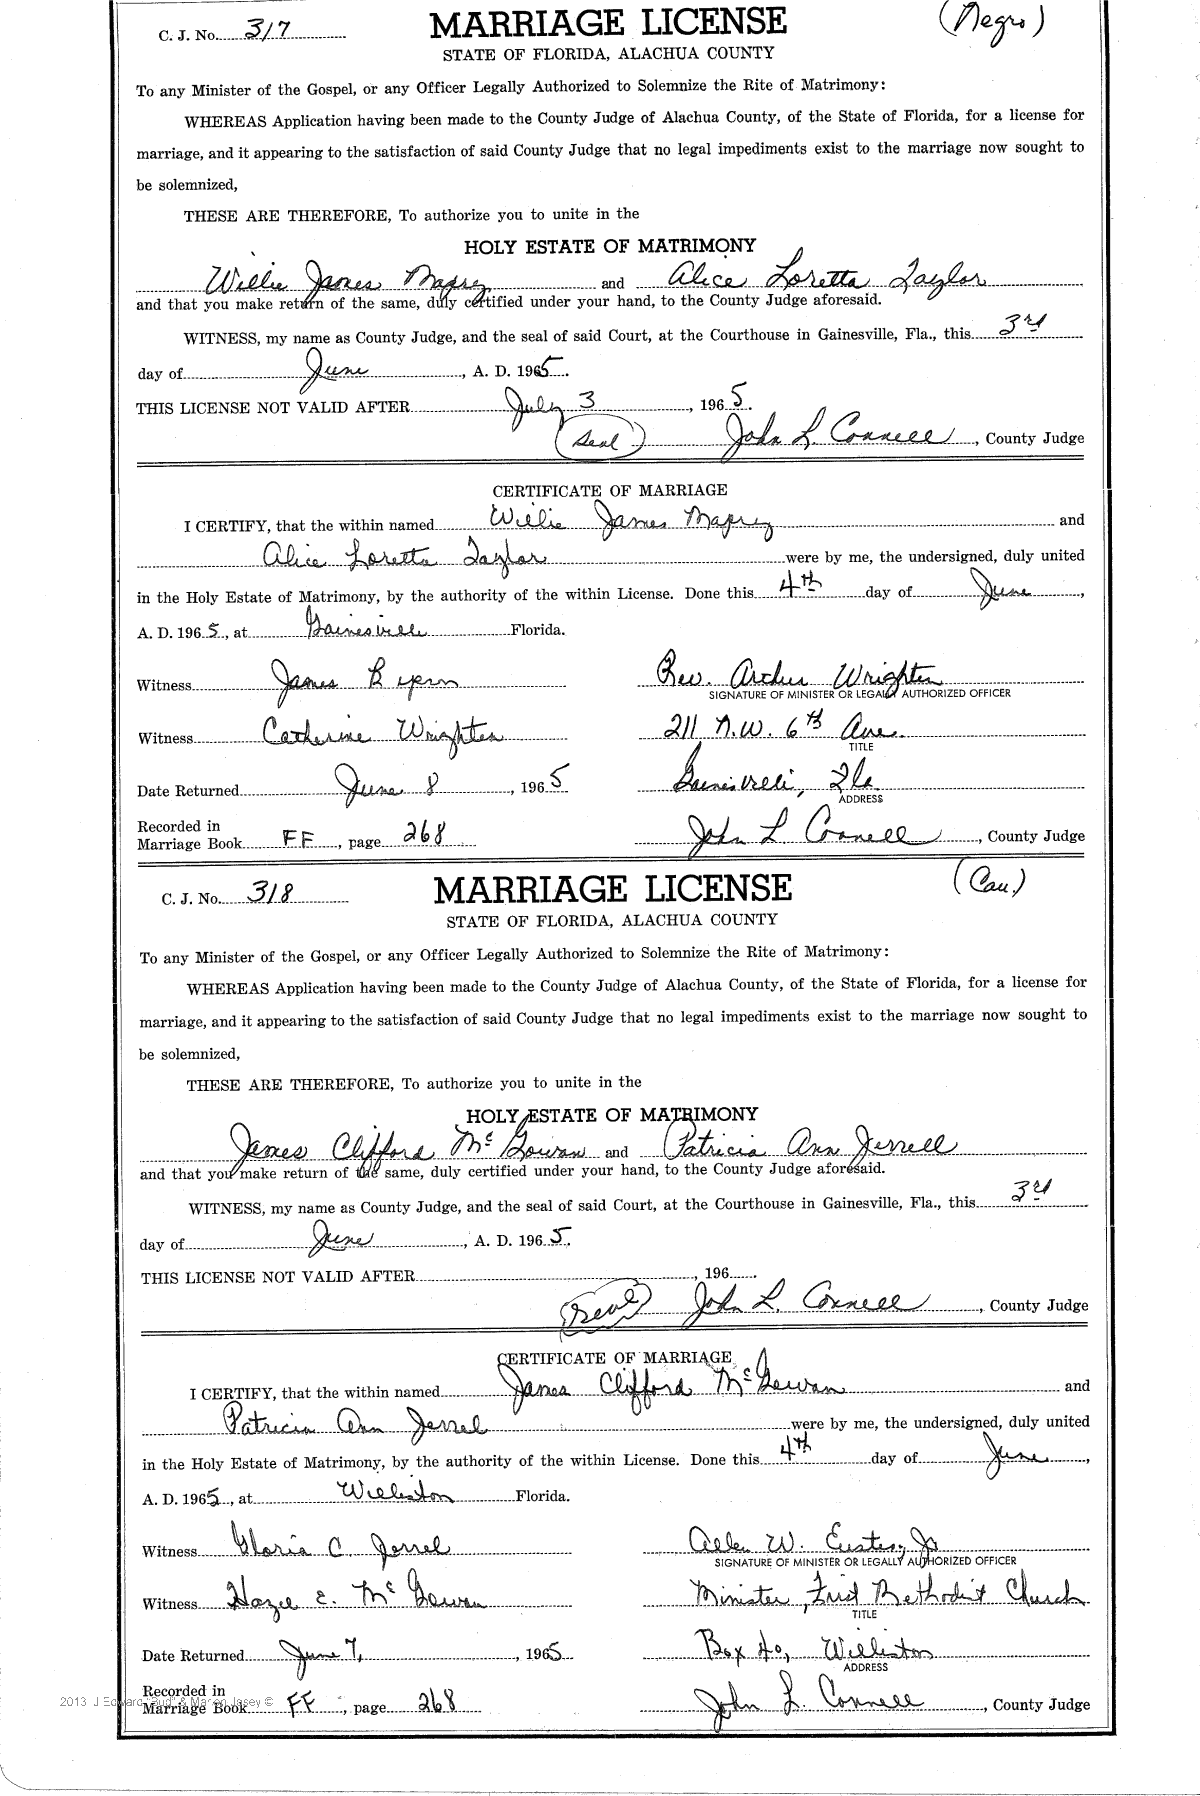 C. J. No. 317 MARRIAGE LICENSE (Negro)
STATE OF FLORIDA, ALACHUA COUNTY
To any Minister of the Gospel, or any Officer Legally Authorized to Solemnize the Rite of Matrimony:
WHEREAS Application having been made to the County Judge of Alachua County, of the State of Florida, for a license for
marriage, and it appearing to the satisfaction of said County Judge that no legal impediments exist to the marriage now sought to
be solemnized,
THESE ARE THEREFORE, To authorize you to unite in the
HOLY ESTATE OF MATRIMONY
Willie James and Alice Loretta Taylor
and that you make return of the same, duly certified under your hand, to the County Judge aforesaid.
WITNESS, my name as County Judge, and the seal of said Court, at the Courthouse in Gainesville, Fla., this 3rd
day of June, A. D. 1965.
THIS LICENSE NOT VALID AFTER July 3, 1965.
(Seal) John L. Connell, County Judge
CERTIFICATE OF MARRIAGE
I CERTIFY, that the within named Willie James and
Alice Loretta Taylor were by me, the undersigned, duly united
in the Holy Estate of Matrimony, by the authority of the within License. Done this 4th day of June,
A. D. 1965, at Gainesville Florida.
Witness James Rev. Wrighten
SIGNATURE OF MINISTER OR LEGALLY AUTHORIZED OFFICER
Witness Catherine Wrighten 211 N.W. 6th Ave.
TITLE
Date Returned June 8, 1965 Gainesville, Fla.
ADDRESS
Recorded in
Marriage Book FF, page 268 John L Connell, County Judge
C. J. No. 318 MARRIAGE LICENSE (Cau.)
STATE OF FLORIDA, ALACHUA COUNTY
To any Minister of the Gospel, or any Officer Legally Authorized to Solemnize the Rite of Matrimony:
WHEREAS Application having been made to the County Judge of Alachua County, of the State of Florida, for a license for
marriage, and it appearing to the satisfaction of said County Judge that no legal impediments exist to the marriage now sought to
be solemnized,
THESE ARE THEREFORE, To authorize you to unite in the
HOLY ESTATE OF MATRIMONY
James Clifford McGowan and Patricia Ann Jerrell
and that you make return of the same, duly certified under your hand, to the County Judge aforesaid.
WITNESS, my name as County Judge, and the seal of said Court, at the Courthouse in Gainesville, Fla., this 3rd
day of June, A. D. 1965.
THIS LICENSE NOT VALID AFTER, 196.
(Seal) John L. Connell, County Judge
CERTIFICATE OF MARRIAGE
I CERTIFY, that the within named James Clifford McGowan and
Patricia Ann Jerrel were by me, the undersigned, duly united
in the Holy Estate of Matrimony, by the authority of the within License. Done this 4th day of June,
A. D. 1965, at Williston Florida.
Witness Gloria C Jerrel Allen W. Jr
SIGNATURE OF MINISTER OR LEGALLY AUTHORIZED OFFICER
Witness Hazel E. McGowan Minister, First Methodist Church
TITLE
Date Returned June 7, 1965 Box 40, Williston
ADDRESS
Recorded in
Marriage Book FF, page 268 John L. Connell, County Judge
2013 J Edward "Bud" & Marion Jasey ©